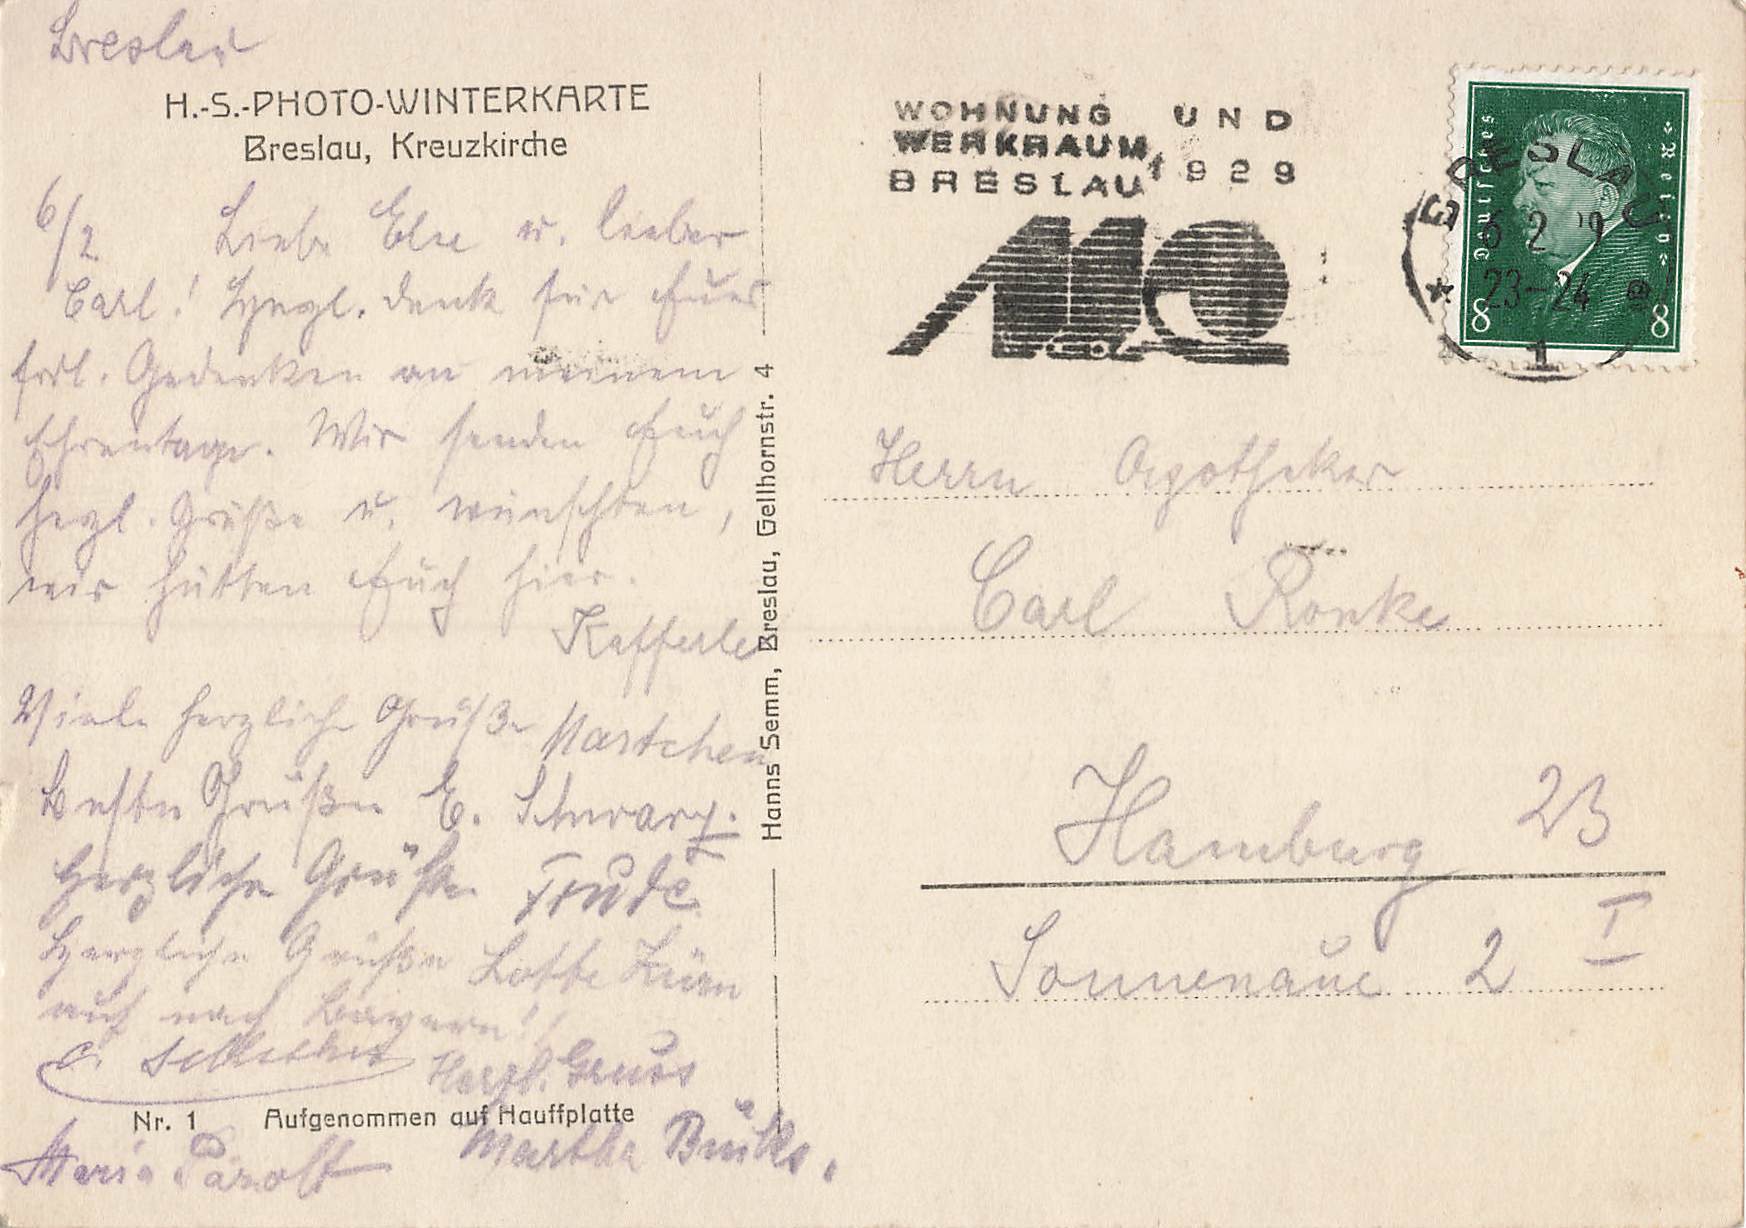 Breslau
H.-S.-PHOTO-WINTERKARTE
Breslau, Kreuzkirche
6/2 Liebe Else u. lieber
Carl! Herzl. Dank für Euer
frdl. Gedenken an meinem
Ehrentage. Wir senden Euch
herzl. Grüße u. wünschten,
wir hätten Euch hier.
Viele herzliche Grüße Martchen
Beste Grüße E. Schwarz.
Herzliche Grüße Trude
Herzliche Grüße Lotte
auf nach Bayern!
Herzl. Gruss
Nr. 1 Aufgenommen auf Hauffplatte
Maria
Martha
Hanns Semm, Breslau, Gellhornstr. 4
WOHNUNG UND
WERKRAUM
BRESLAU 1929
BRESLAU
6 2 19
* 23-24 e
1
Deutsches Reich
8 8
Herrn Apotheker
Carl Rönke
Hamburg 23
Sonnenaue 2 I